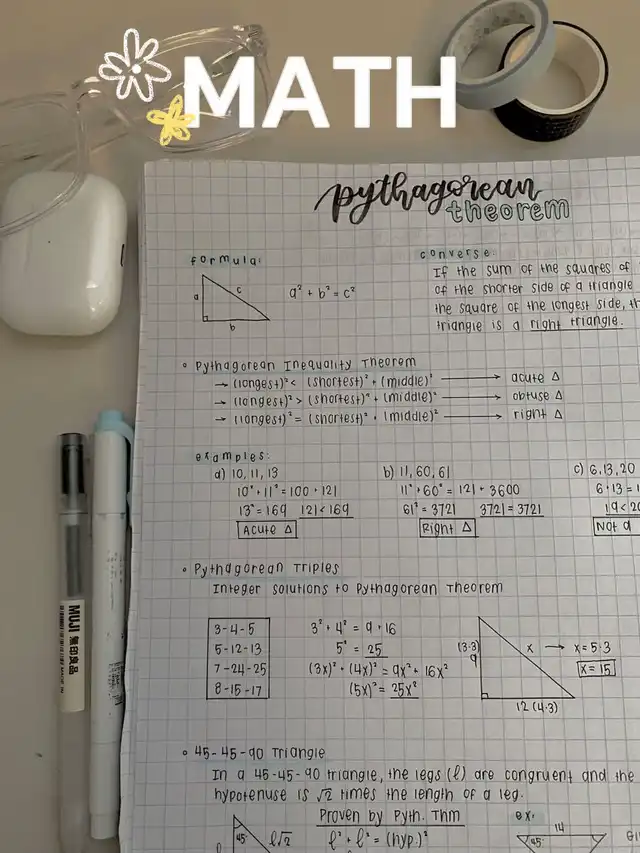 MATH
pythagorean
theorem
formula:
a
c
b
a² + b² = c²
converse:
If the sum of the squares of
of the shorter side of a triangle
the square of the longest side, th
triangle is a right triangle.
Pythagorean Inequality Theorem
→ (longest)² < (shortest)² + (middle)² → acute Δ
→ (longest)² > (shortest)² + (middle)² → obtuse Δ
→ (longest)² = (shortest)² + (middle)² → right Δ
examples:
a) 10, 11, 13
10² + 11² = 100 + 121
13² = 169 121 < 169
Acute Δ
b) 11, 60, 61
11² + 60² = 121 + 3600
61² = 3721 3721 = 3721
Right Δ
c) 6, 13, 20
6 + 13 = 1
19 < 20
Not a
Pythagorean Triples
Integer solutions to Pythagorean Theorem
3-4-5
5-12-13
7-24-25
8-15-17
3² + 4² = 9 + 16
5² = 25
(3x)² + (4x)² = 9x² + 16x²
(5x)² = 25x²
(3·3)
9
x → x = 5·3
x = 15
12 (4·3)
45-45-90 Triangle
In a 45-45-90 triangle, the legs (ℓ) are congruent and the
hypotenuse is √2 times the length of a leg.
45°
ℓ√2
ℓ
Proven by Pyth. Thm
ℓ² + ℓ² = (hyp.)²
ex:
14
45°
MUJI 無印良品